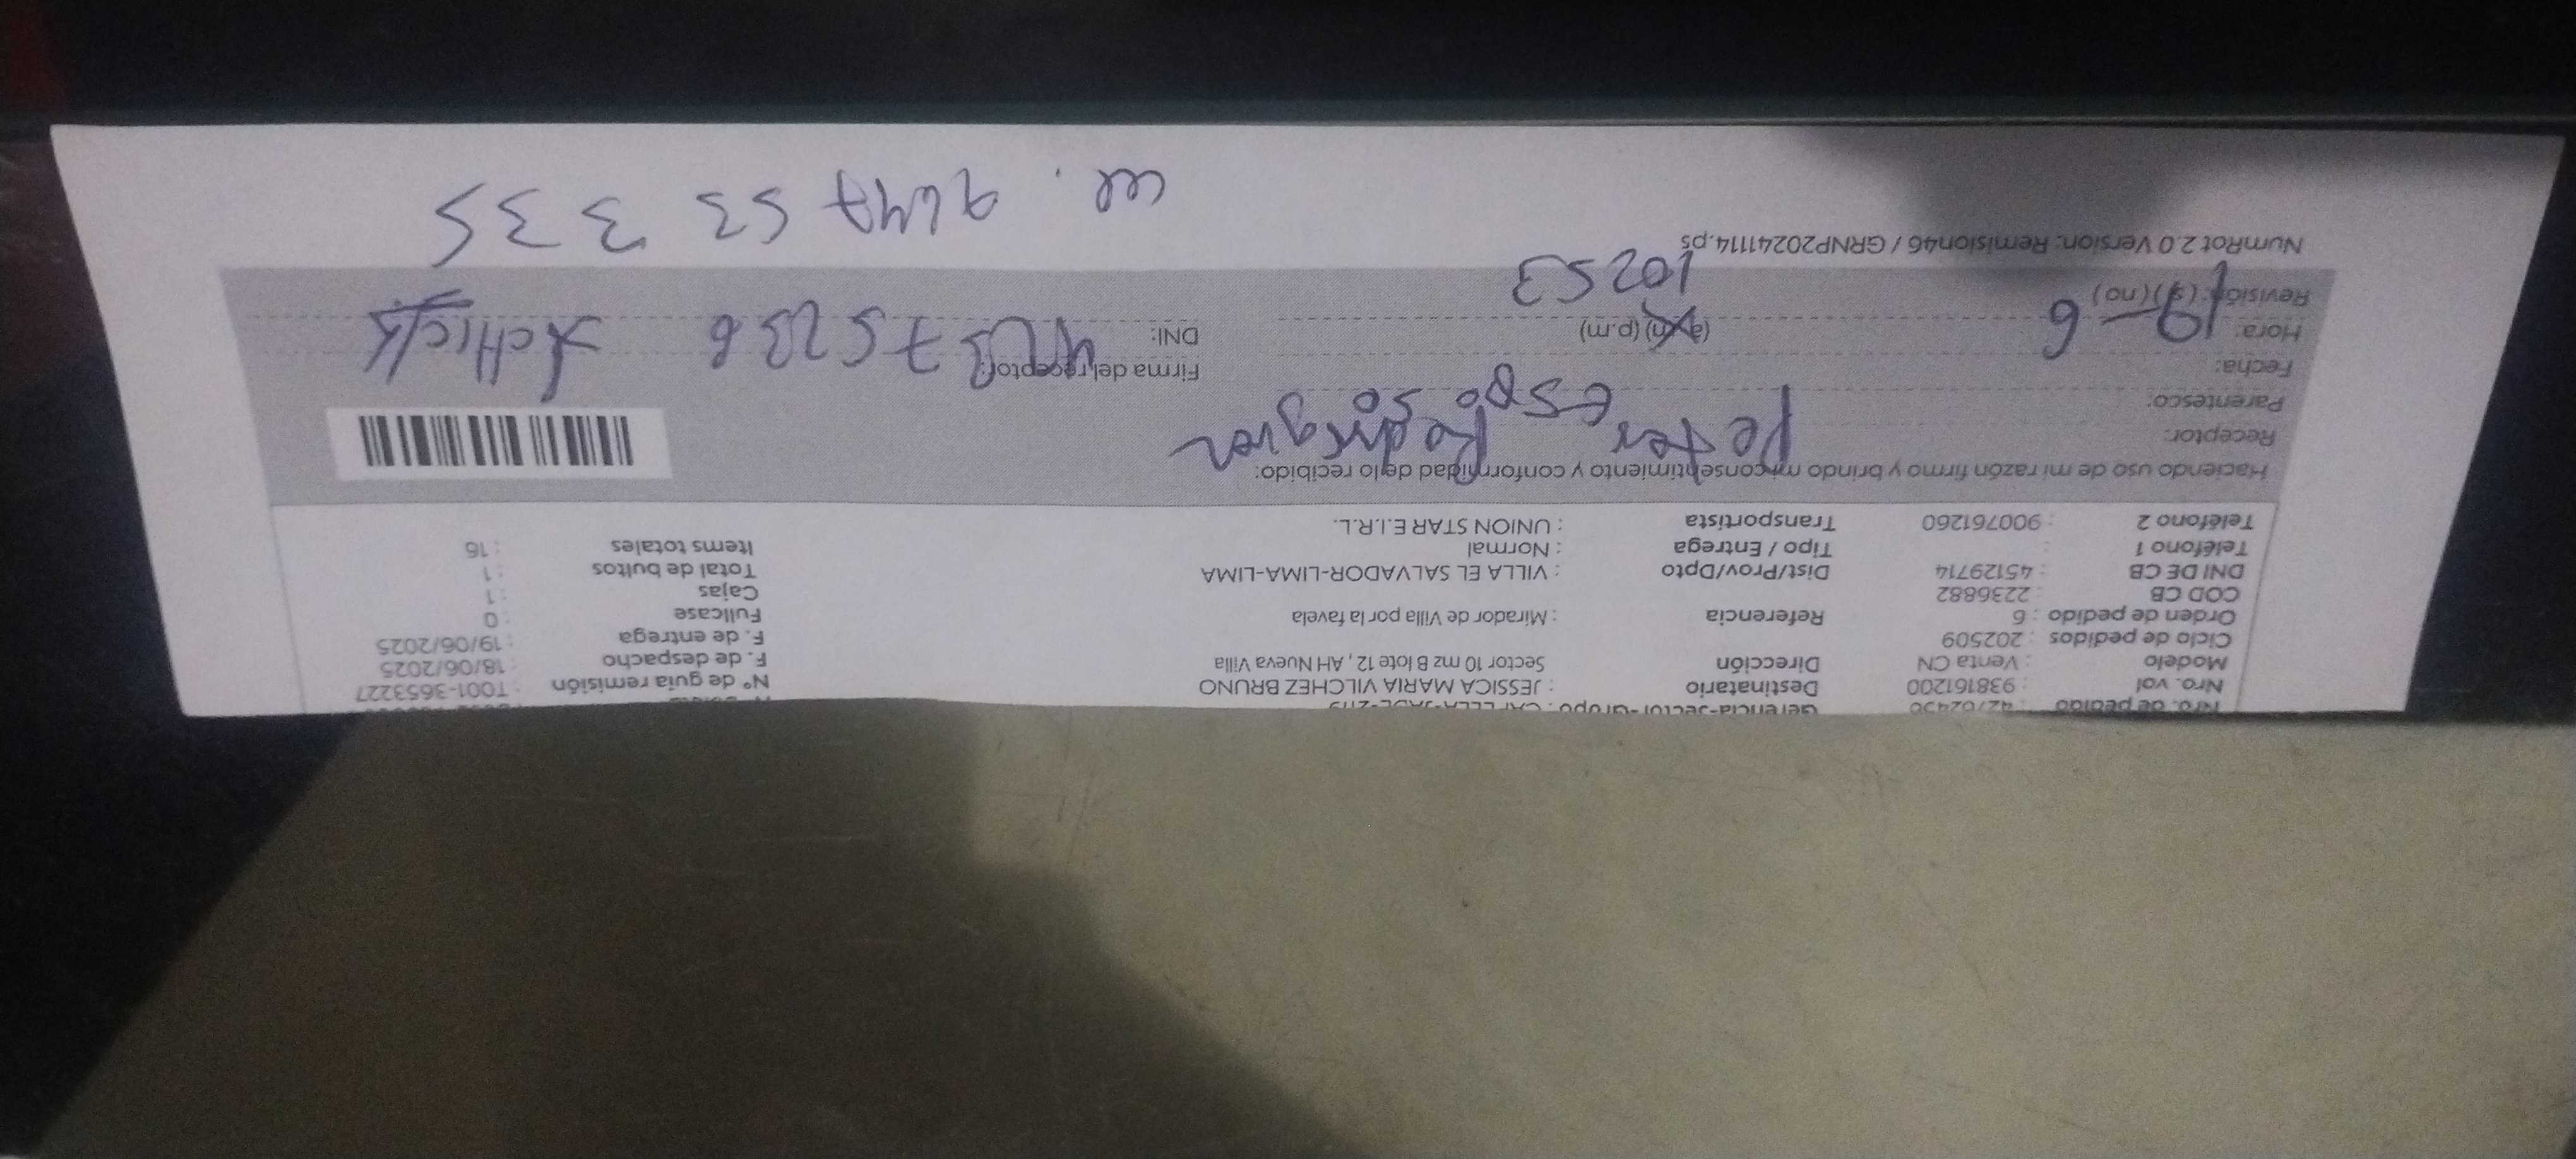 Nro. de pedido : 42702450 Gerencia-Sector-Grupo : CAPELLA-JADE-2119
Nro. vol : 938161200 Destinatario : JESSICA MARIA VILCHEZ BRUNO N° de guía remisión : T001-3653227
Modelo : Venta CN Dirección Sector 10 mz B lote 12 , AH Nueva Villa F. de despacho : 18/06/2025
Ciclo de pedidos : 202509 F. de entrega : 19/06/2025
Orden de pedido : 6 Referencia : Mirador de Villa por la favela Fullcase : 0
COD CB : 2236882 Cajas : 1
DNI DE CB : 45129714 Dist/Prov/Dpto : VILLA EL SALVADOR-LIMA-LIMA Total de bultos : 1
Teléfono 1 : Tipo / Entrega : Normal Items totales : 16
Teléfono 2 : 900761260 Transportista : UNION STAR E.I.R.L.
Haciendo uso de mi razón firmo y brindo mi consentimiento y conformidad de lo recibido:
Receptor: Rodriguez
Parentesco: Esposo
Fecha: 19-6 Firma del receptor:
Hora: (a.m) (p.m) DNI:
Revisión: (si) (no) 10253
NumRot 2.0 Version: Remision46 / GRNP20241114.ps